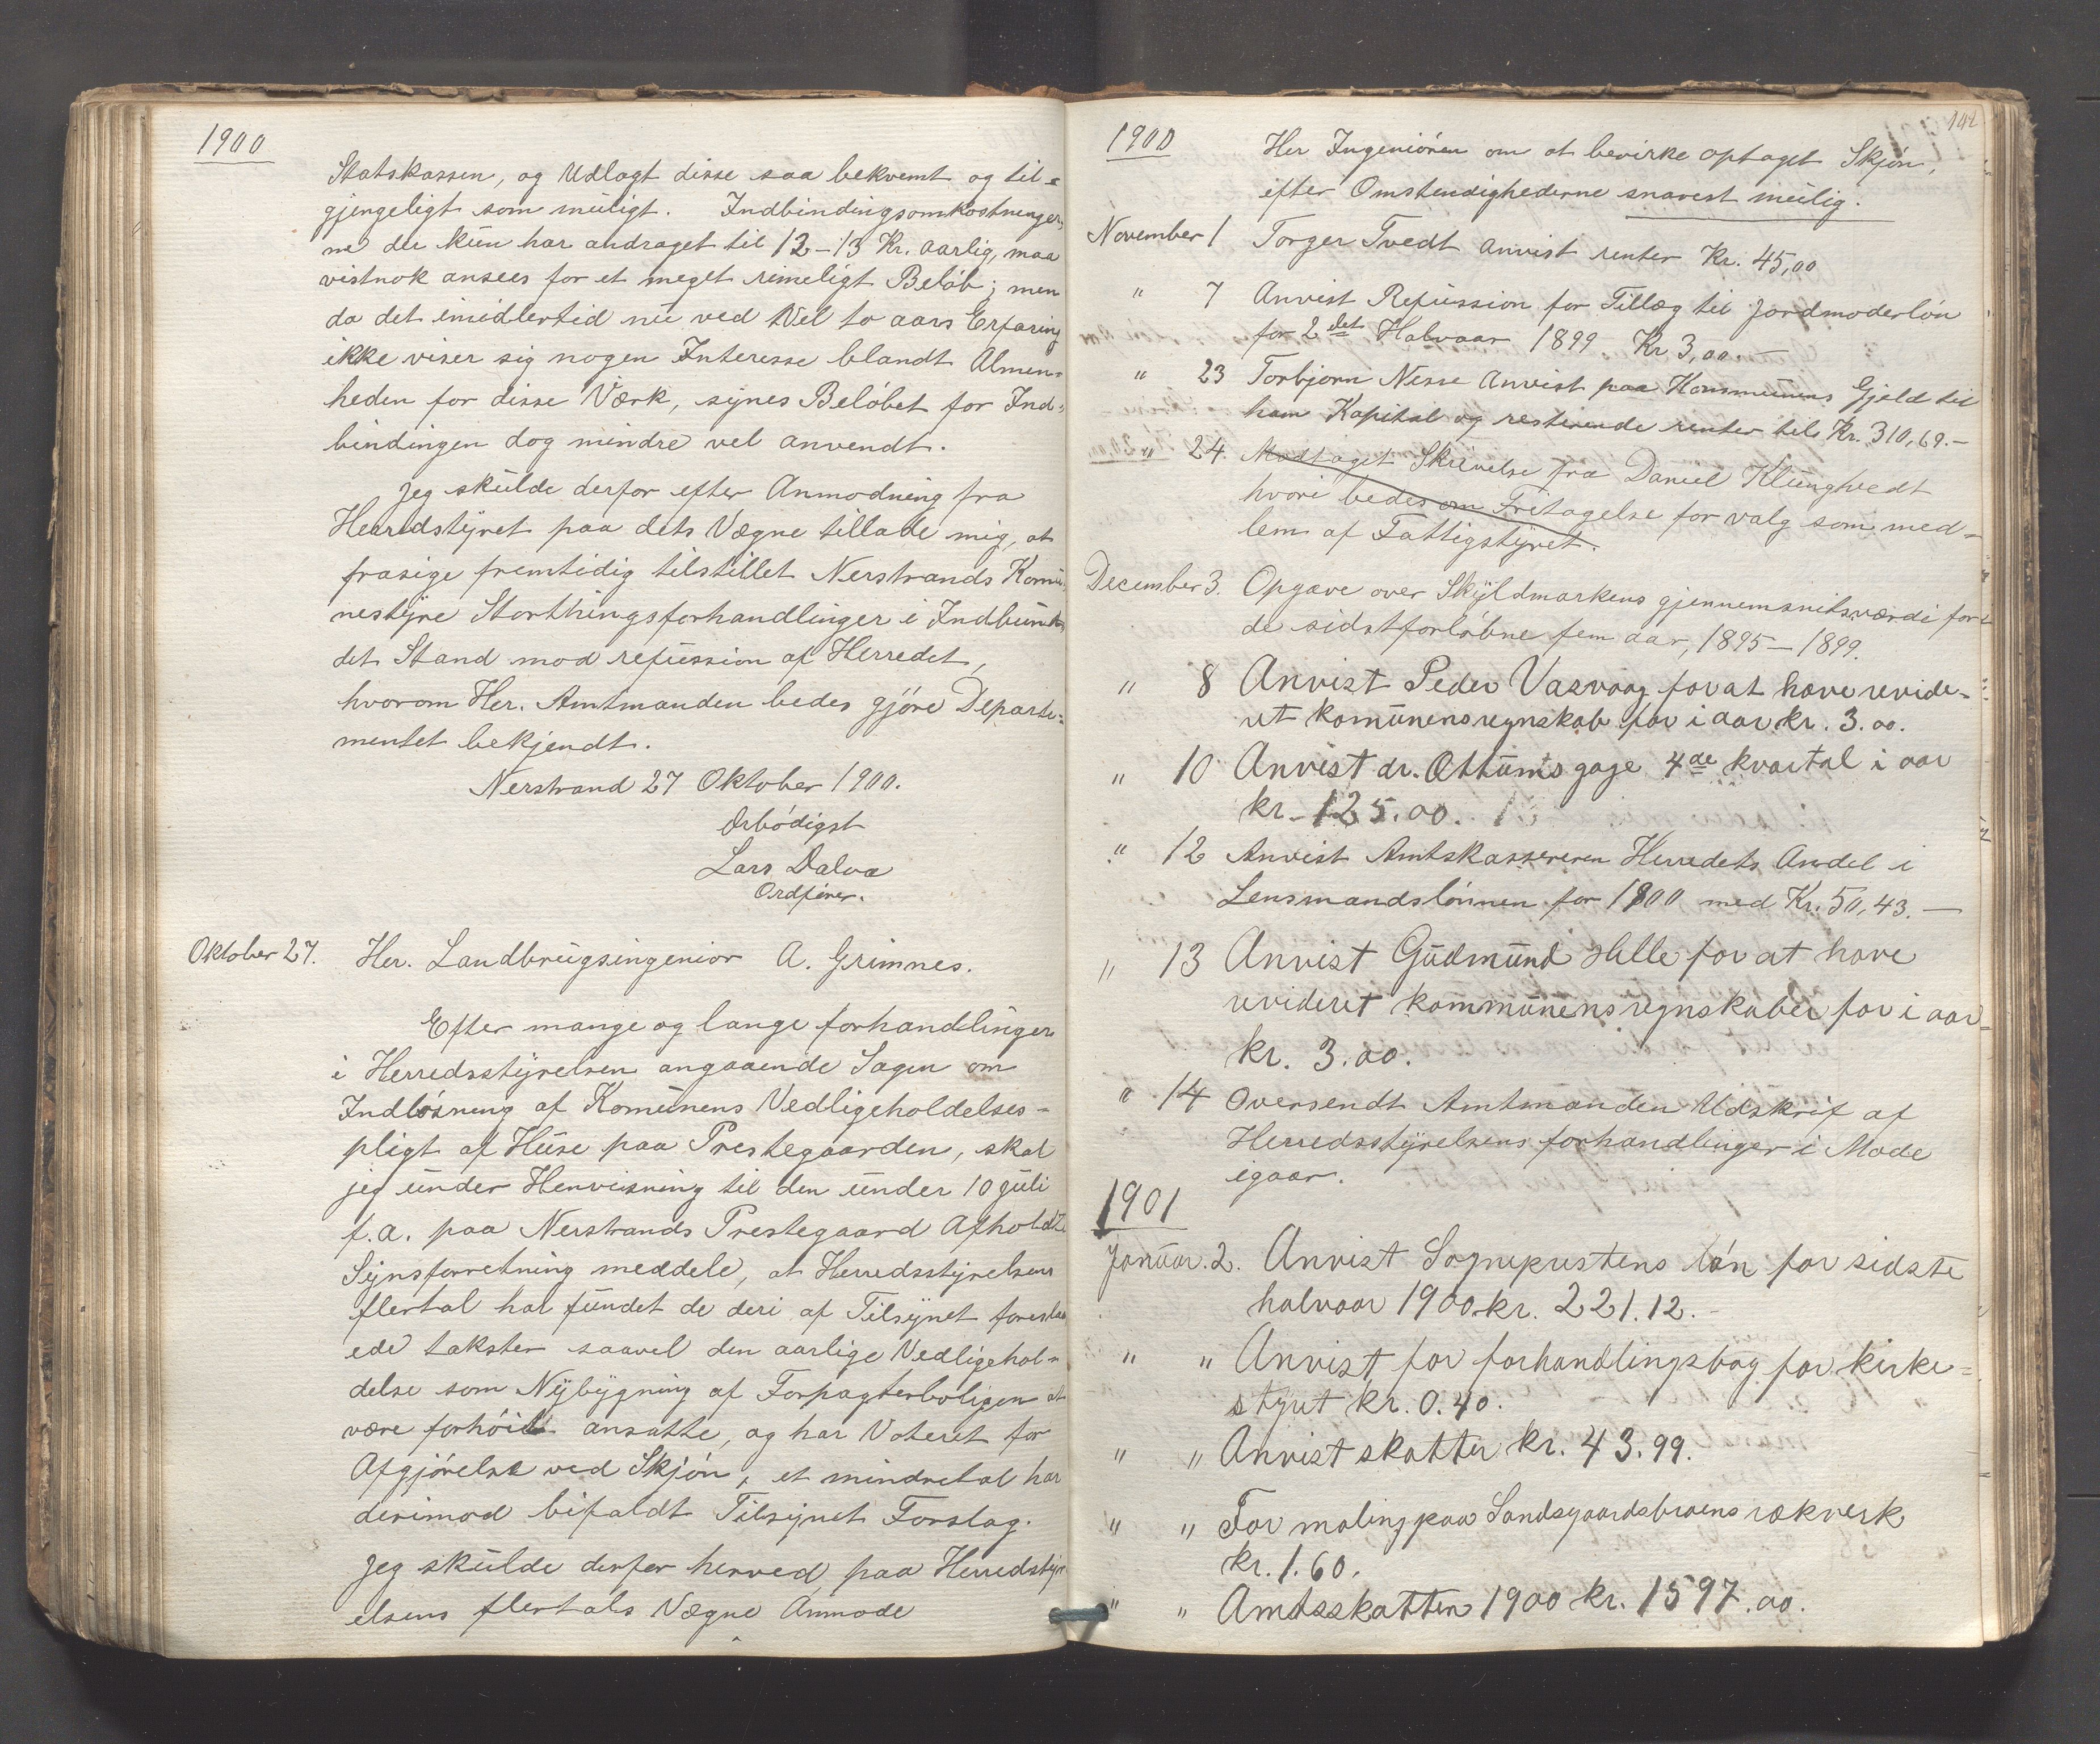 1900
Statskassen, og Udlagt disse saa bekvemt og til=
gjengeligt som muligt. Indbindingsomkostninger,
ne der kun har andraget til 12–13 Kr. aarlig, maa
vistnok ansees for et meget rimeligt Beløb; men
da det imidlertid nu ved Vel to aars Erfaring
ikke viser sig nogen Interesse blandt Almen=
heden for disse Værk, synes Beløbet for Ind=
bindingen dog mindre vel anvendt.
Jeg skulde derfor efter Anmodning fra
Herredstyret paa dets Vægne tillade mig, at
frasige fremtidig tilstillet Nerstrands Komu
nestyre Storthingsforhandlinger i Indbun
det Stand mod refussion af Herredet,
hvorom Her. Amtmanden bedes gjøre Departe=
mentet bekjendt.
Nerstrand 27 Oktober 1900.
Ærbødigst
Lars Dalva
Ordfører.
Oktober 27. Her. Landbrugsingeniør A. Grimnes.
Efter mange og lange forhandlinger
i Herredsstyrelsen angaaende Sagen om
Indløsning af Komunens Vedligeholdelses-
pligt af Huse paa Prestegaarden, skal
jeg under Henvisning til den under 10 Juli
f.a. paa Nerstrands Prestegaard Afholdte
Synsforretning meddele, at Herredsstyrelsens
flertal har fundet de deri af Tilsynet foreslaa
ede takster saavel den aarlige Vedligehol=
delse som Nybygning af Forpagterboligen at
være forhøit ansatte, og har Voteret for
Afgjørelse ved Skjøn, et mindretal har
derimod bifaldt Tilsynet Forslag.
Jeg skulde derfor herved paa Herredstyr
elsens flertals Vægne Anmode
141
1900
Her Ingeniøren om at bevirke optaget Skjøn,
efter Omstendighederne snarest mulig.
November 1 Torger Tvedt anvist renter Kr. 45,00
" 7 Anvist Refussion for Tillæg til Jordmoderløn
for 2det Halvaar 1899 Kr 3,00.—
" 23 Torbjørn Nesse Anvist paa Kommunens Gjeld til
ham Kapital og resterende renter tils Kr. 310,69.—
" 24. Modtaget Skrivelse fra Daniel Klunghvedt
hvori bedes om Fritagelse for valg som med=
lem af Fattigstyret.
December 3. Opgave over Skyldmarkens gjennemsnitsværdi for
de sidstforløbne fem aar, 1895–1899.
" 8 Anvist Peder Vasvaag for at have revide-
ret komunensregnskab for i aar kr. 3.00.
" 10 Anvist dr. Ottums gage 4de kvartal i aar
kr. 125.00.
" 12 Anvist Amtskassereren Herredets Andel i
Lensmandslønnen for 1900 med Kr. 50,43.—
" 13 Anvist Gudmund Hille for at have
revideret kommunens regnskaber for i aar
kr. 3.00.
" 14 Oversendt Amtmanden Udskrif af
Herredsstyrelsens forhandlinger i Møde
igaar.
1901
Januar. 2. Anvist Sogneprestens løn for sidste
halvaar 1900 kr. 221.12.-
" " Anvist for forhandlingsbog for kirke=
styret kr. 0.40.
" " Anvist skatter kr. 43.99.
" " For maling paa Sandsgaardsbroens rækverk
kr. 1.60.
" " Amtsskatten 1900 kr. 1597.00.